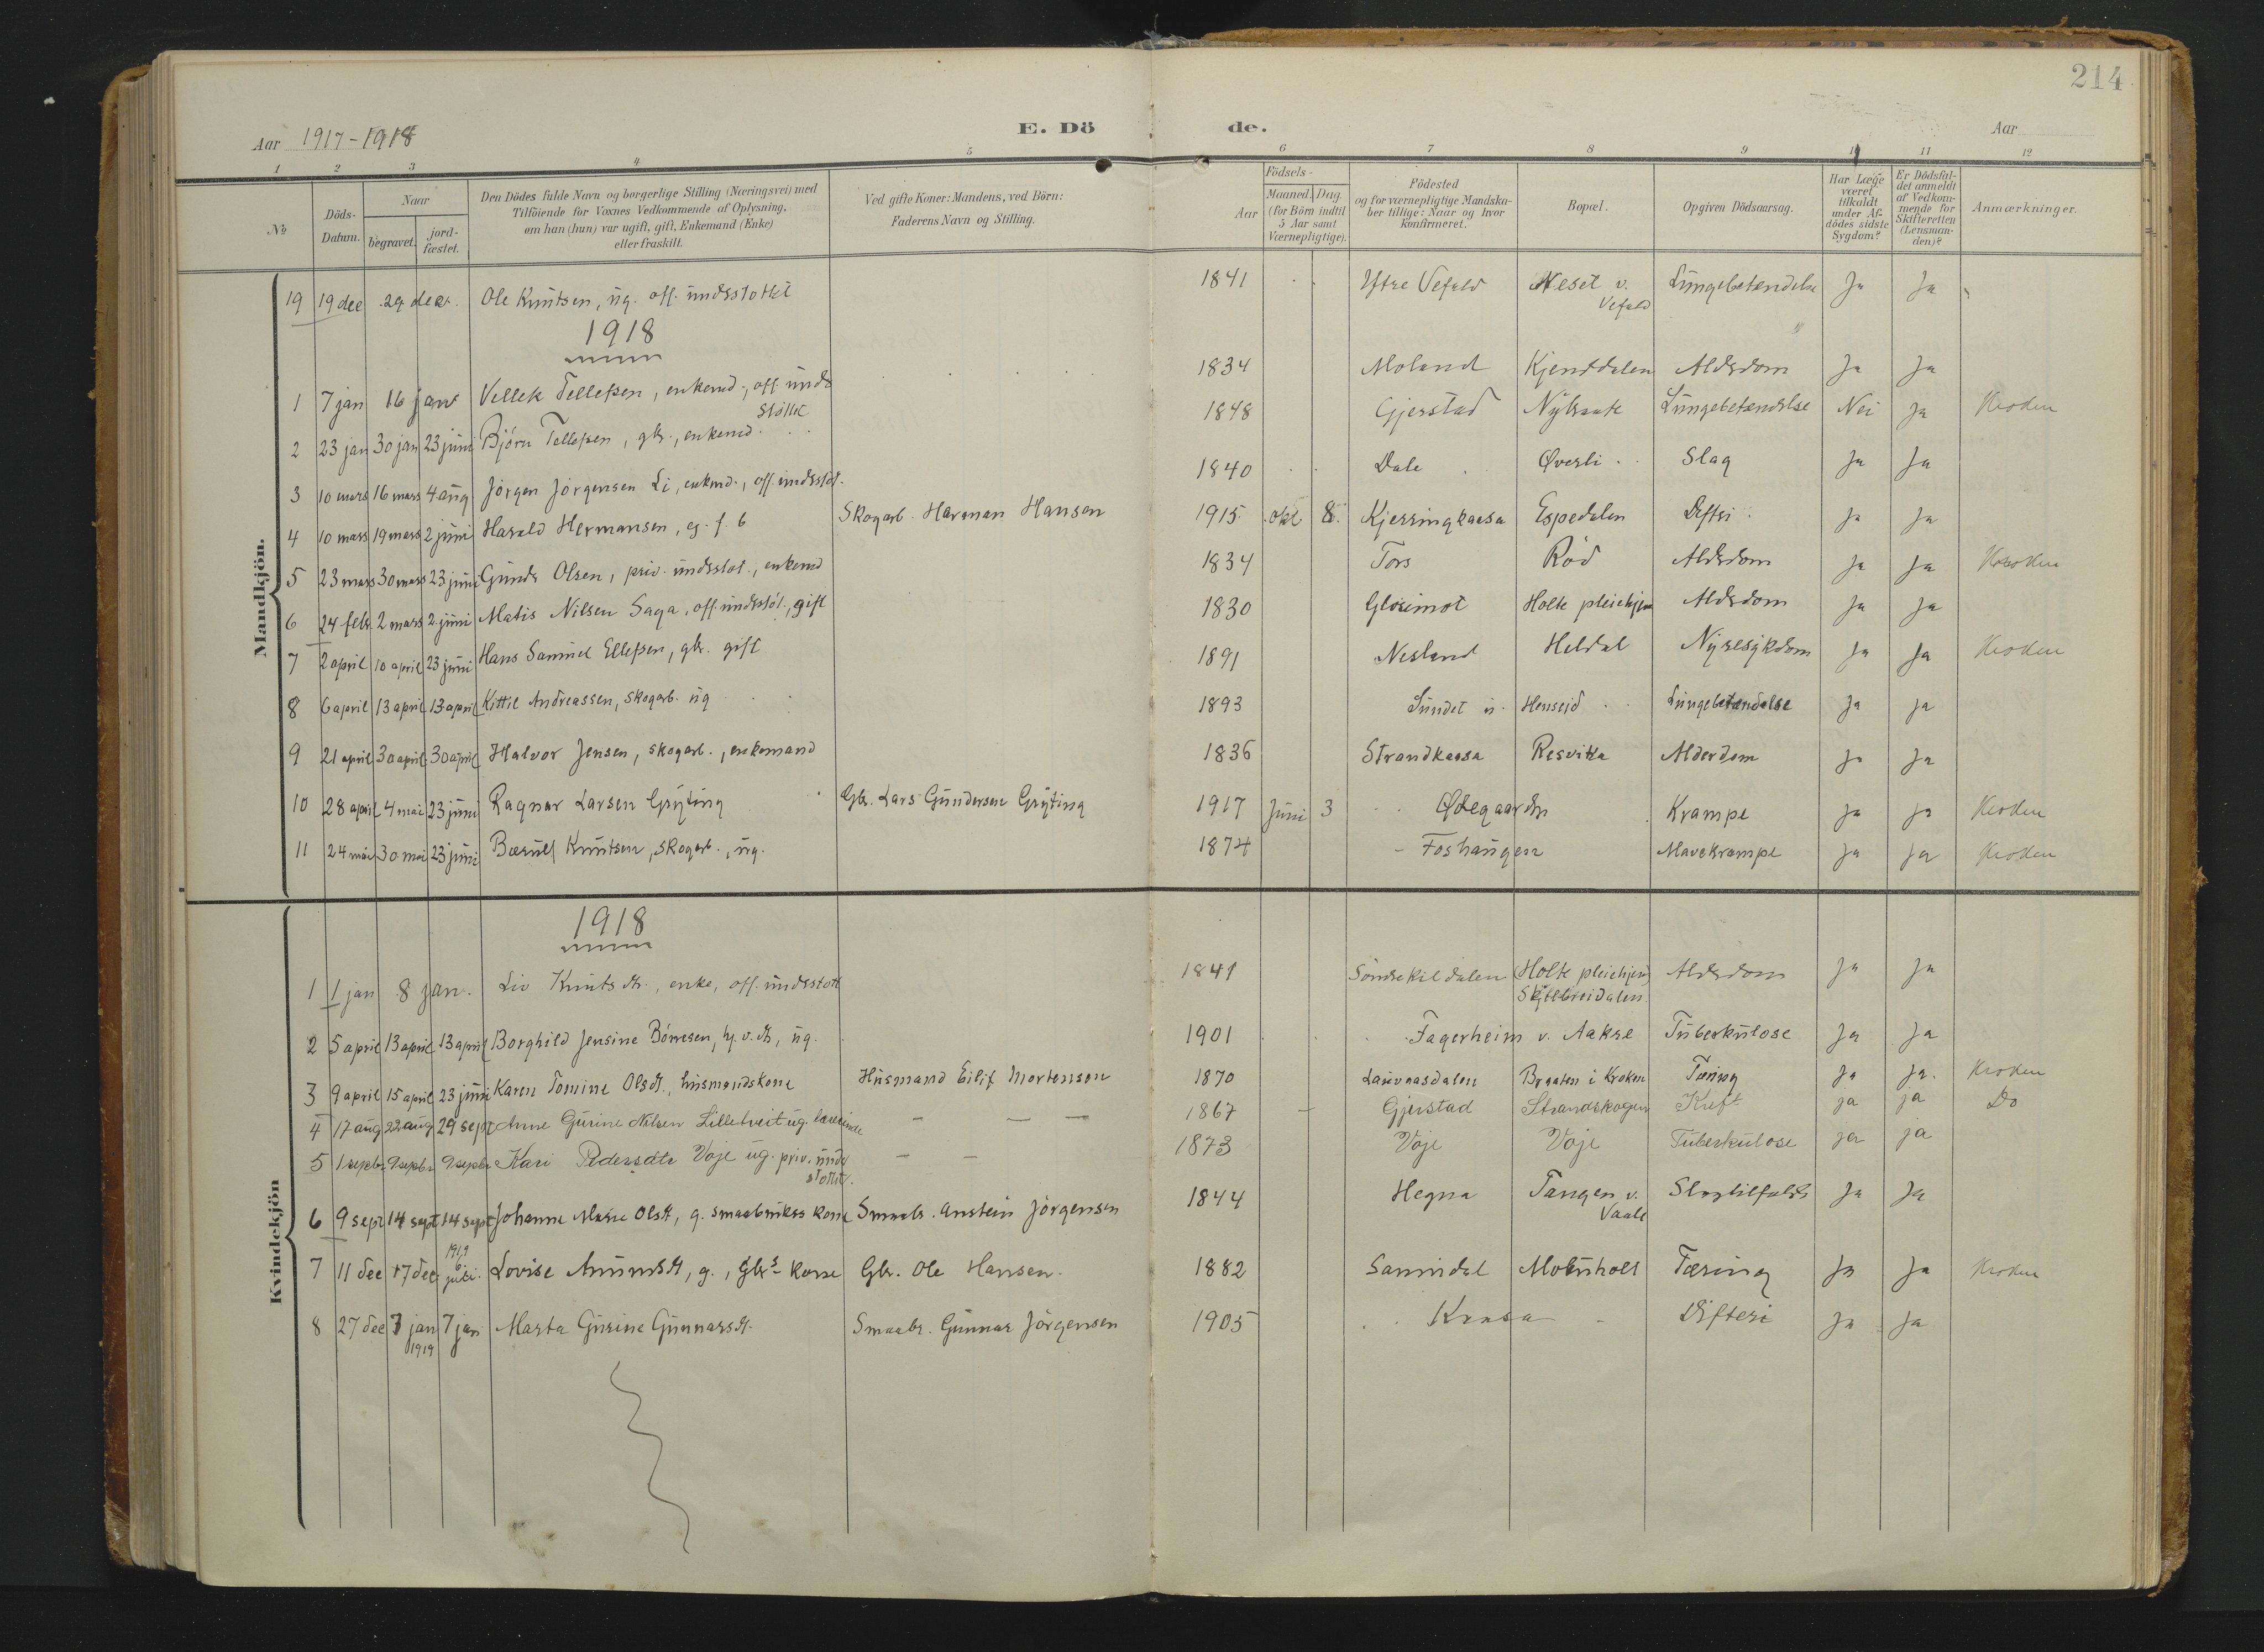 214
Aar 1917-1918 E. Dö de. Aar
1 2 3 4 5 6 7 8 9 10 11 12
No
Döds-Datum.
Naar
begravet. jord-fæstet.
Den Dödes fulde Navn og borgerlige Stilling (Næringsvei) med
Tilföiende for Voxnes Vedkommende af Oplysning,
om han (hun) var ugift, gift, Enkemand (Enke)
eller fraskilt.
Ved gifte Koner: Mandens, ved Börn:
Faderens Navn og Stilling.
Födsels-
Aar Maaned. Dag.
(for Börn indtil
5 Aar samt
Værnepligtige).
Födested
og for værnepligtige Mandska-
ber tillige: Naar og hvor
konfirmeret.
Bopæl.
Opgiven Dödsaarsag.
Har Læge
været
tilkaldt
under Af-
dödes sidste
Sygdom?
Er Dödsfal-
det anmeldt
af Vedkom-
mende for
Skifteretten
(Lensman-
den)?
Anmærkninger.
Mandkjön.
19 19 dec 29 dec. Ole Knutsen, ug. off. understottet 1841 Ytre Vefald Neset v. Vefald Lungebetendelse Ja Ja
1918
1 7 jan 16 janr Vellek Tellefsen, enkemd., off. understöttet 1834 Moland Kjenddalen Aldrdom Ja Ja
2 23 jan 30 jan 23 juni Björn Tellefsen, gbr., enkemd. 1848 Gjerstad Nybraate Lungebetendelse Nei Ja Kroken
3 10 mars 16 mars 4 aug Jörgen Jörgensen Li, enkmd., off. understöt. 1840 Dale Øverli Slag Ja Ja
4 10 mars 19 mars 2 juni Harald Hermansen, eg. f. 6 Skogarb. Herman Hansen 1915 okt 8. Kjerringkaasa Espedalen Difteri Ja Ja
5 23 mars 30 mars 23 juni Gunder Olsen, priv. understöt., enkemd 1834 Tors Röd Aldrdom Ja Ja Kroken
6 24 febr. 2 mars 2 juni Matis Nilsen Saga, off. understöt., gift 1830 Glosimot Holte pleiehjem Aldrdom Ja Ja
7 2 april 10 april 23 juni Hans Samuel Ellefsen, gbr. gift 1891 Nesland Heldal Nyresykdom Ja Ja Kroken
8 6 april 13 april 13 april Kittil Andreassen, skogarb. ug 1893 Sundet u. Henseid Lungebetændelse Ja Ja
9 21 april 30 april 30 april Halvor Jensen, skogarb., enkemand 1836 Strandkaasa Resvika Alderdom Ja Ja
10 28 april 4 mai 23 juni Ragnar Larsen Gryting Gbr. Lars Gundersen Gryting 1917 Juni 3 Ødegaarden Krampe Ja Ja Kroken
11 24 mai 30 mai 23 juni Bærulf Knutsen, skogarb., ug. 1874 Foshaugen Mavekrampe Ja Ja Kroken
Kvindekjön
1918
1 1 jan 8 jan. Liv Knutsdt., enke, off. understött 1841 Söndrekildalen Holte pleiehjem Skjelbreidalen Aldrdom Ja Ja
2 5 april 13 april 13 april Borghild Jensine Börresen, hj. v. dt, ug. 1901 Fagerheim v. Aakre Tuberkulose Ja Ja
3 9 april 15 april 23 juni Karen Tomine Olsdt., husmandskone Husmand Eilif Mortensen 1870 Lauvaasdalen Braaten i Kroken Tæring Ja Ja. Kroken
4 17 aug 22 aug 29 sept Anne Gurine Nilsen Lilletveit ug. lærerinde — — — 1867 — Gjerstad Strandskogen Kreft ja ja Do
5 1 septbr 9 septbr 9 septbr Kari Pedersdtr Voje ug. priv. understöttet. — — 1873 Voje Voje Tuberkulose ja ja
6 9 sept 14 sept 14 sept Johanne Marie Olsdt, g. smaabrukers kone Smaabr. Anstein Jörgensen 1844 Hegna Tangen v. Vaale Slagtilfælde Ja Ja
7 11 dec 17 dec 1919 6 juli. Lovise Amundsdt, g., Gbrs kone Gbr. Ole Hansen. 1882 Sannidal Molunholt Tæring Ja Ja Kroken
8 27 dec 7 jan 1919 7 jan Marta Gurine Gunnarsdt. Smaabr. Gunnar Jörgensen 1905 Kraasa Difteri Ja Ja